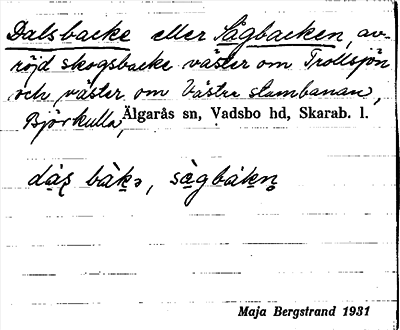 Dalsbacke eller Sågbacken, av-
röjd skogsbacke väster om Trollsjön
och väster om Västra stambanan,
Björkulla, Älgarås sn, Vadsbo hd, Skarab. l.
dàṣ bàkə, sàgbàkn̥
Maja Bergstrand 1931